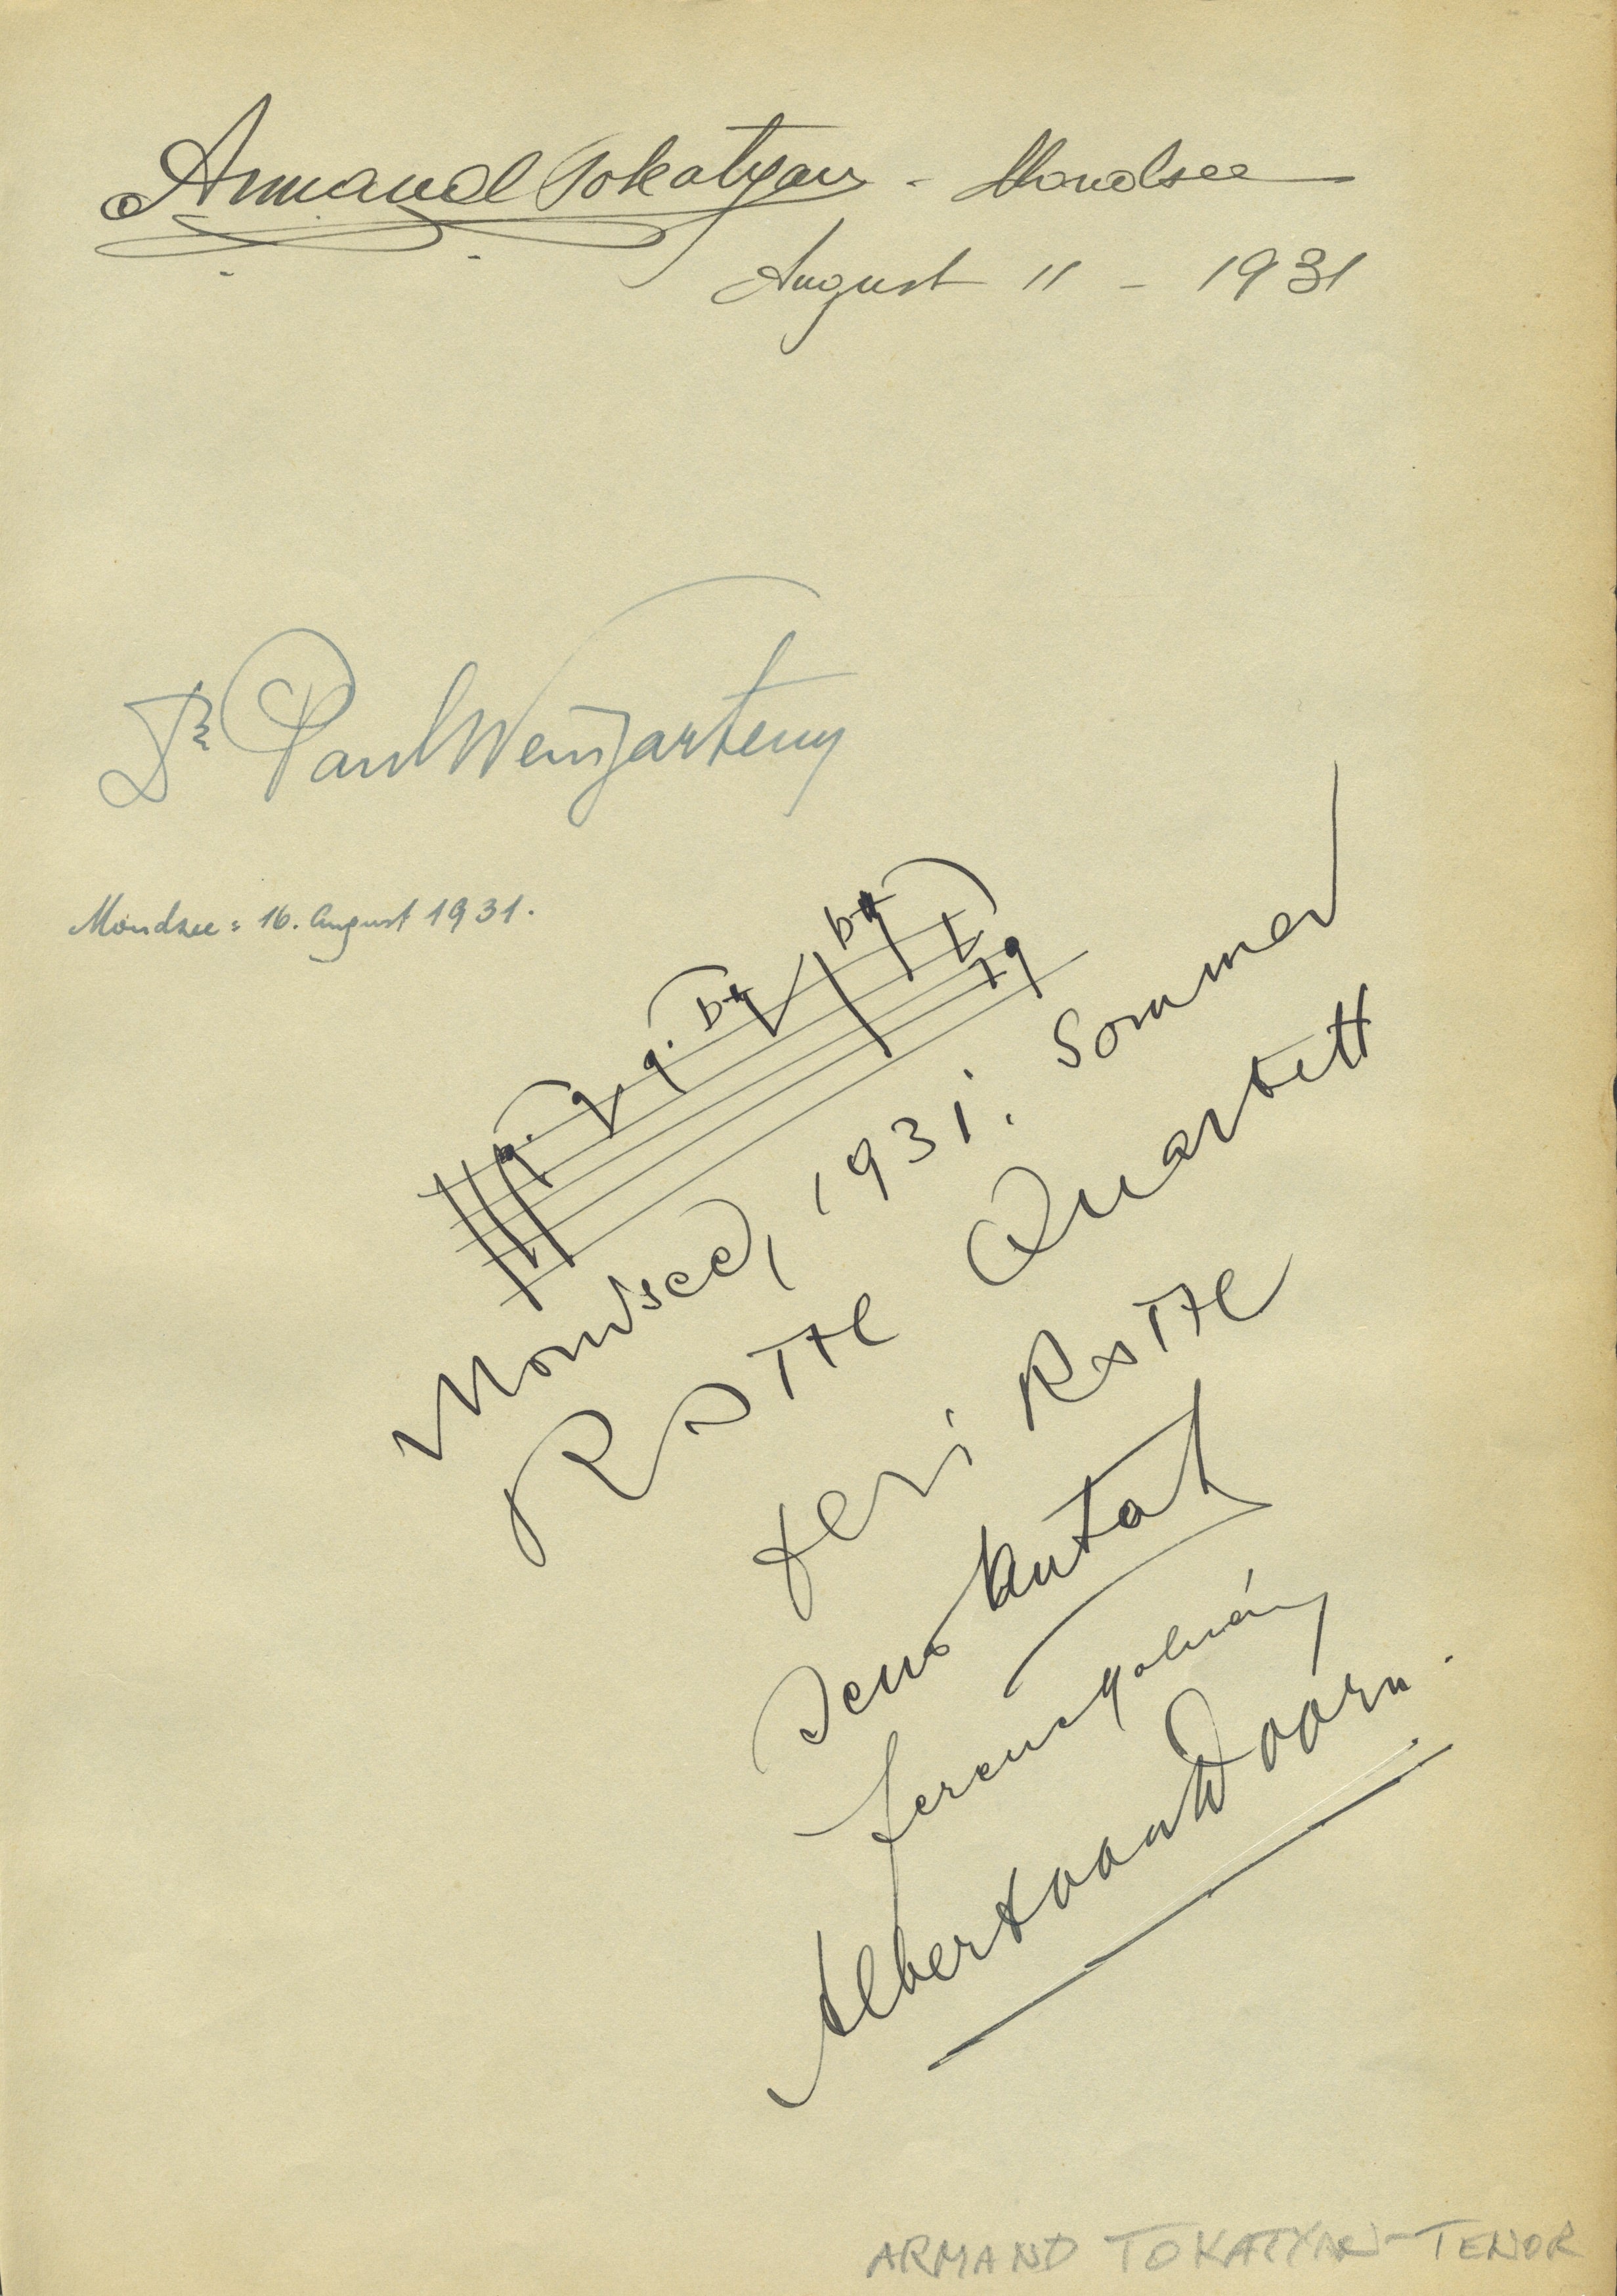 Armand Tokatyan - Mondsee
August 11 - 1931
Dr Paul Weingarten
Mondsee: 16. August 1931.
Mondsee, 1931. Sommer
ROTH Quartett
Feri ROTH
Jenö Antal
Ferenc Molnár
Albert van Doorn.
ARMAND TOKATYAN - TENOR